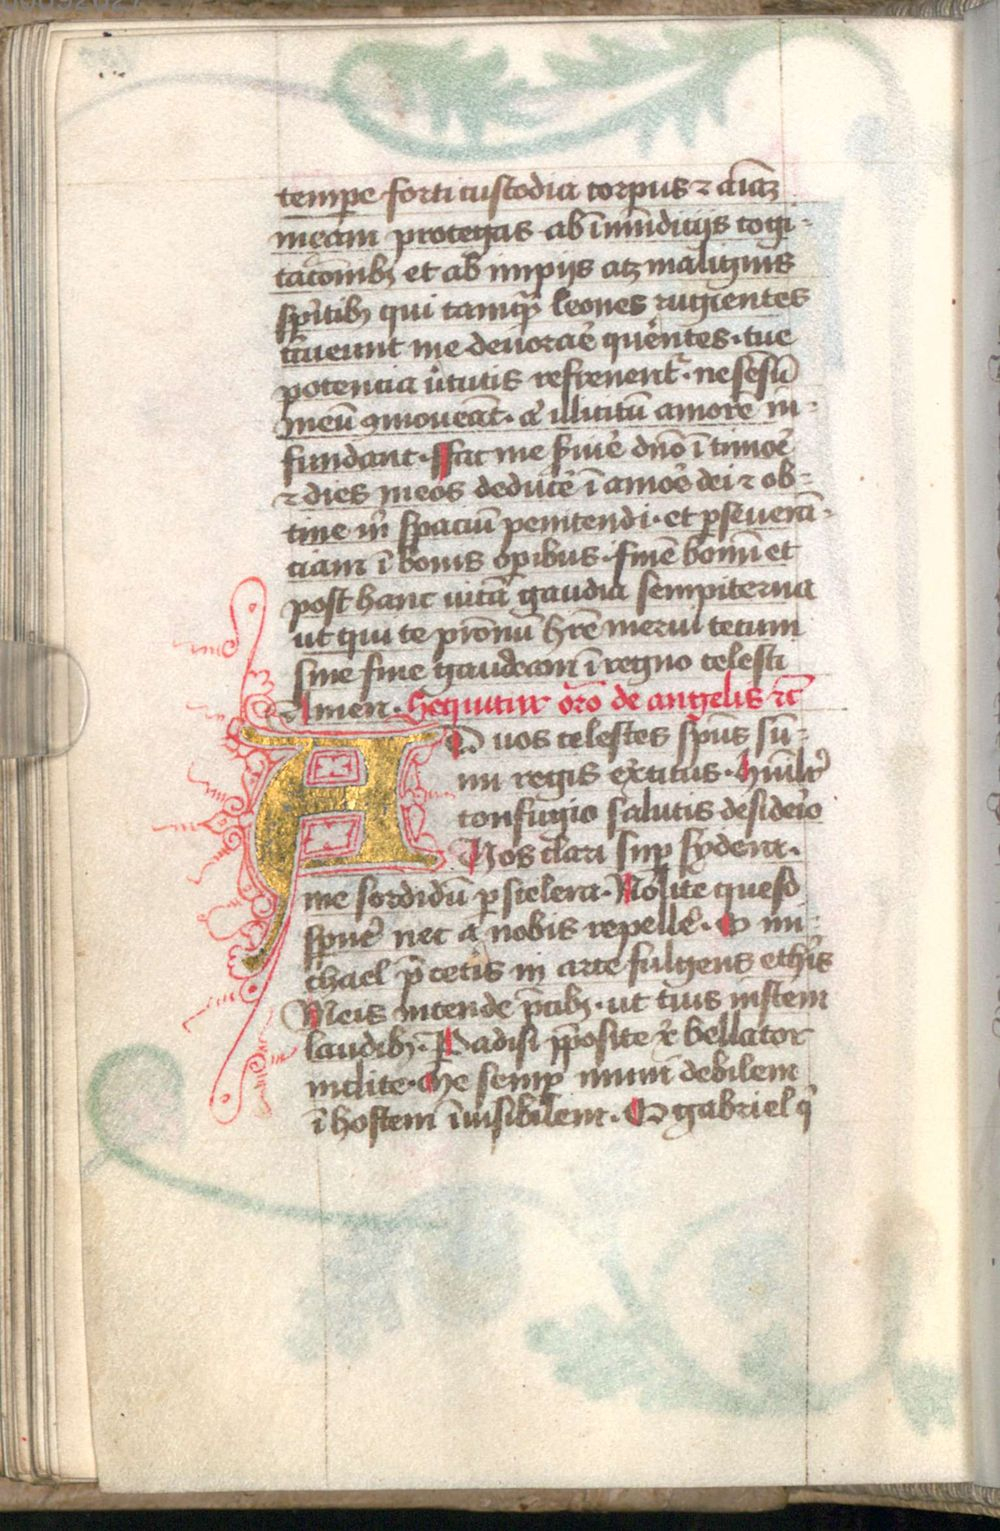 tempe forti custodia corpus ⁊ aīaꝫ
meam protegas ab īmūdicijs cogi-
tacōnibꝫ et ab impijs atꝫ malignis
sp̄itibꝫ qui tamqͣ leones rugientes
devorare querentes · tue
potencia v̓tutis refrenent᷑ · ne sēsū
meū ꝯmoveāt · illicitū amorē in-
fundant · ffac me s̓uire dn̄o ī timoē
⁊ dies meos deducē ī amoē dei ⁊ ob-
tine m̄ spaciū penitendi · et ꝑseverā-
ciam ī bonis oꝑibus · finē bonū et
post hanc vitā gaudia sempiterna
ut qui te pronū hr̄e merui tecum
sine fine gaudeam ī regno celesti
Amen · Sequitur or̄o de angelis ⁊c̄
AD vos celestes sp̄us sū-
mi regis exercitus · Hūilit̓
confugio salutis desiderio
Vos clari suꝑ sydera ·
me sordidū ꝑ scelera · Nolite queso
spnere nec a nobis repellē · O mi-
chael p̄ cetis in arce fulgens eth̓is
Meis intende p̄cibꝫ · ut tuis instem
laudibꝫ · Padisi p̄posite ⁊ bellator
inclite · Me semꝑ muni debilem
ī hostem īvisibilem · O gabriel q̓